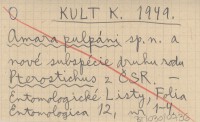 KULT K. 1949.
Amara pulpáni sp. n. a
nové subspécie druhu rodu
Pterostichus z ČSR. —
Entomologické Listy, Folia
Entomologica 12, 1-4